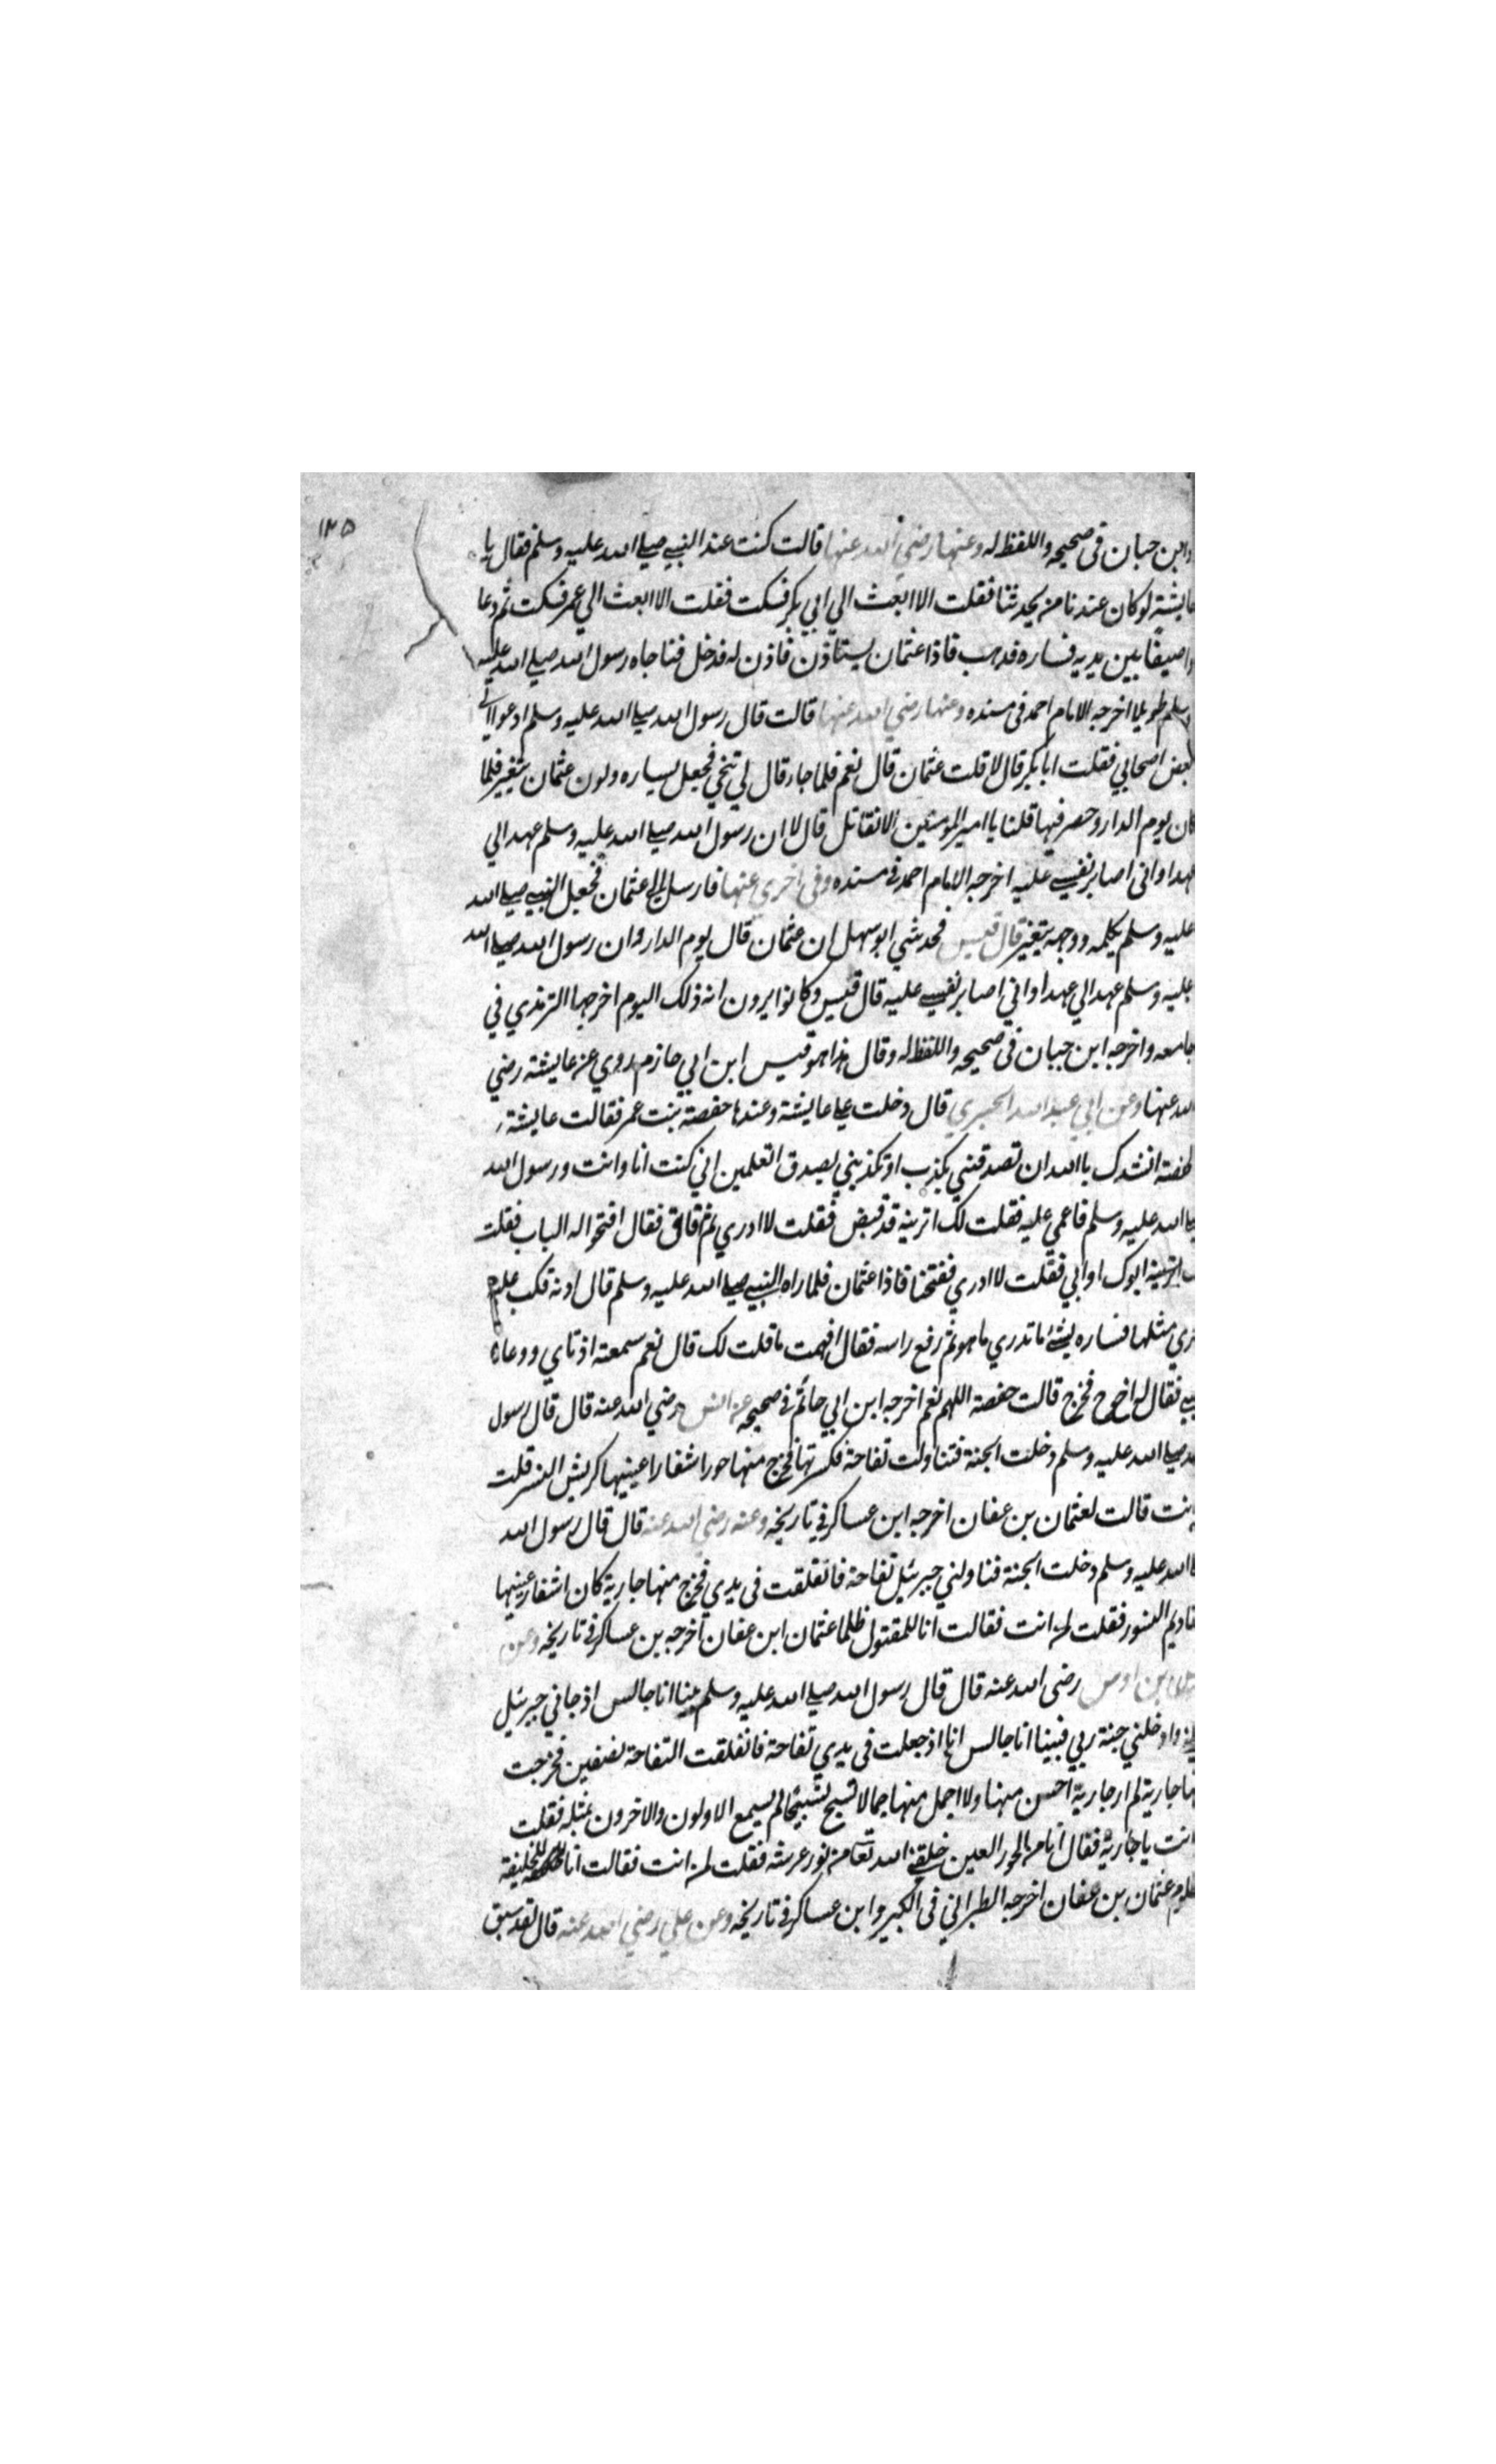 ١٢٥
وابن حبان فى صحيحه واللفظ له وعنها رضي الله عنها قالت كنت عند النبي صلي الله عليه وسلم فقال يا
عايشة لوكان عندنا من يحدثنا فقلت الا ابعث الي ابي بكر فسكت فقلت الا ابعث الي عمر فسكت ثم دعا
وصيفا بين يديه فساره فذهب فاذا عثمان يستاذن فاذن له فدخل فناجاه رسول الله صلي الله عليه
وسلم طويلا اخرجه الامام احمد فى مسنده وعنها رضي الله عنها قالت قال رسول الله صلي الله عليه وسلم ادعوا لي
بعض اصحابي فقلت ابا بكر قال لا قلت عثمان قال نعم فلما جاء قال لي تنحي فجعل يساره ولون عثمان يتغير فلما
كان يوم الدار وحصر فيها قلنا يا امير المومنين الا تقاتل قال لا ان رسول الله صلي الله عليه وسلم عهد الي
عهدا واني اصابر نفسي عليه اخرجه الامام احمد في مسنده وفى اخري عنها فارسل الي عثمان فجعل النبي صلي الله
عليه وسلم يكلمه ووجهه يتغير قال قيس فحدثني ابو سهل ان عثمان قال يوم الدار وان رسول الله صلي الله
عليه وسلم عهد الي عهدا واني اصابر نفسي عليه قال قيس وكانوا يرون انه ذلك اليوم اخرجها الترمذي في
جامعه واخرجه ابن حبان فى صحيحه واللفظ له وقال هذا هو قيس ابن ابي حازم روي عن عايشة رضي
الله عنها وعن ابي عبد الله الجسري قال دخلت علي عايشة وعندها حفصة بنت عمر فقالت عايشة
لحفصة انشدك بالله ان تصدقيني بكذب او تكذبيني بصدق اتعلمين اني كنت انا وانت ورسول الله
صلي الله عليه وسلم فاغمي عليه فقلت لك اترينه قد قبض فقلت لا ادري ثم افاق فقال افتحوا له الباب فقلت
لك اترينه ابوك او ابي فقلت لا ادري ففتحنا فاذا عثمان فلما راه النبي صلي الله عليه وسلم قال ادنه فكب عليه
اخري مثلها فساره بشئ ما تدري ما هو ثم رفع راسه فقال افهمت ما قلت لك قال نعم سمعته اذناي ووعاه
قلبي فقال له اخرج فخرج قالت حفصة اللهم نعم اخرجه ابن ابي حاتم في صحيحه عن انس رضي الله عنه قال قال رسول
الله صلي الله عليه وسلم دخلت الجنة فتناولت تفاحة فكسرتها فخرج منها حورا اشفار اعينيها كريش النسر قلت
لمن انت قالت لعثمان بن عفان اخرجه ابن عساكر في تاريخه وعنه رضي الله عنه قال قال رسول الله
صلي الله عليه وسلم دخلت الجنة فناولني جبرئيل تفاحة فانفلقت فى يدي فخرج منها جارية كان اشفار عينيها
مقاديم النسور فقلت لمن انت فقالت انا للمقتول ظلما عثمان ابن عفان اخرجه بن عساكر في تاريخه وعن
بن اوس رضى الله عنه قال قال رسول الله صلي الله عليه وسلم بينا انا جالس اذ جاني جبرئيل
وادخلني جنة ربي فبينا انا جالس اذ جعلت فى يدي تفاحة فانفلقت التفاحة نصفين فخرجت
منها جارية لم ار جارية احسن منها ولا اجمل منها جمالا تسبح تسبيحا لم يسمع الاولون والاخرون بمثله فقلت
انت يا جارية فقال انا من الحور العين خلقني الله تعا من نور عرشه فقلت لمن انت فقالت انا للخليفة
المظلوم عثمان بن عفان اخرجه الطبراني فى الكبير وابن عساكر في تاريخه وعن علي رضي الله عنه قال لقد سبق